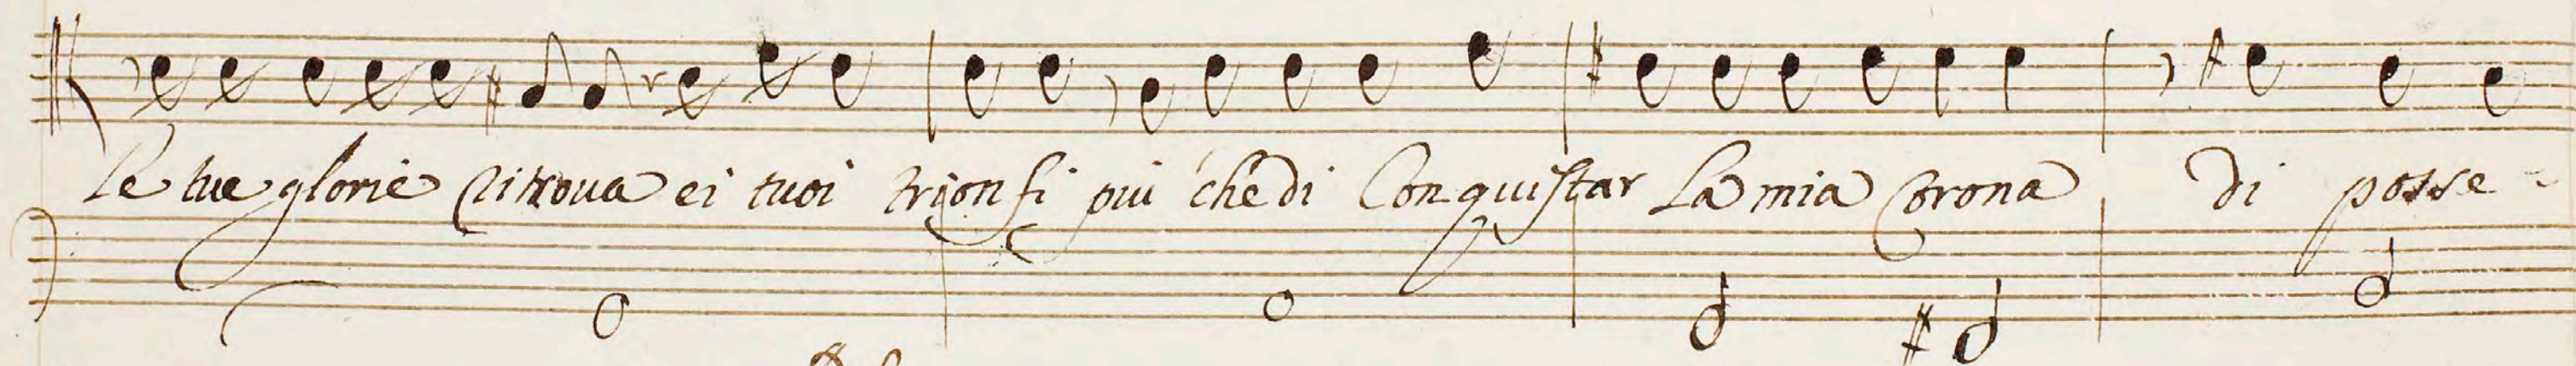 le tue glorie ritroua ei tuoi trionfi piu che di Conquistar La mia Corona di posse -